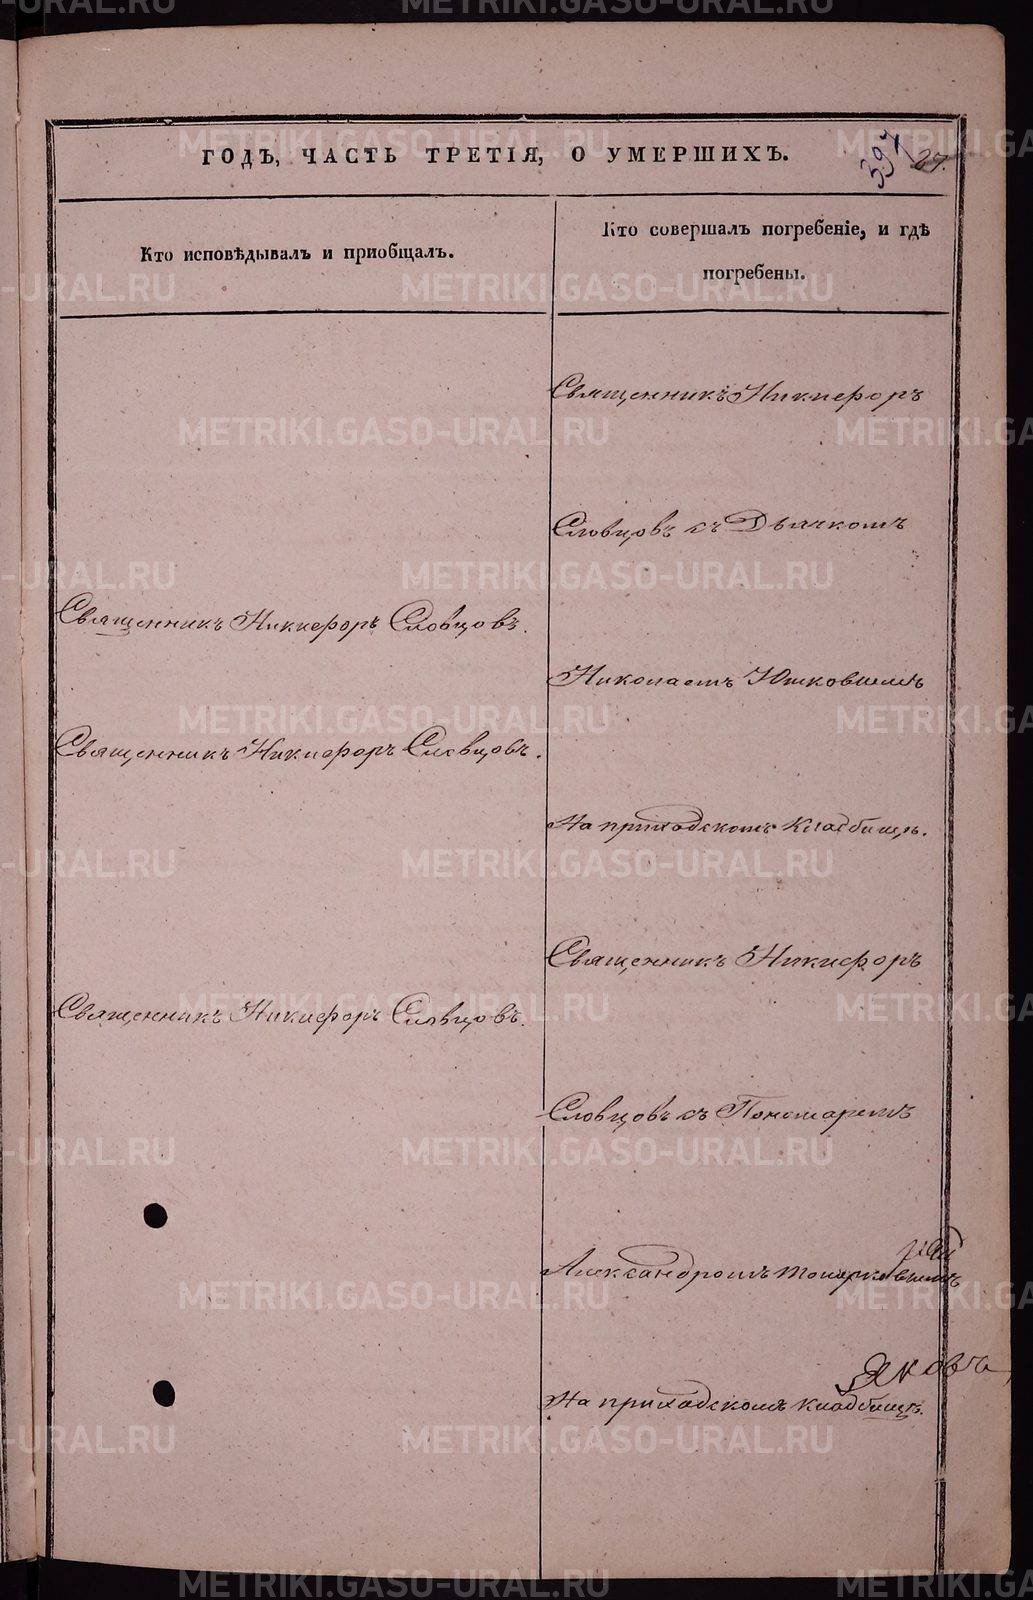 ГОДЪ, ЧАСТЬ ТРЕТІЯ, О УМЕРШИХЪ.
397
27.
Кто исповѣдывалъ и приобщалъ.
Кто совершалъ погребеніе, и гдѣ
погребены.
Священникъ Никифоръ
Словцовъ съ Дьячкомъ
Священникъ Никифоръ Словцовъ.
Николаемъ Юшковымъ
Священникъ Никифоръ Словцовъ.
На приходскомъ кладбищѣ.
Священникъ Никифоръ
Священникъ Никифоръ Словцовъ.
Словцовъ съ Пономаремъ
Александромъ Топорковымъ
Яковъ
На приходскомъ кладбищѣ.
METRIKI.GASO-URAL.RU